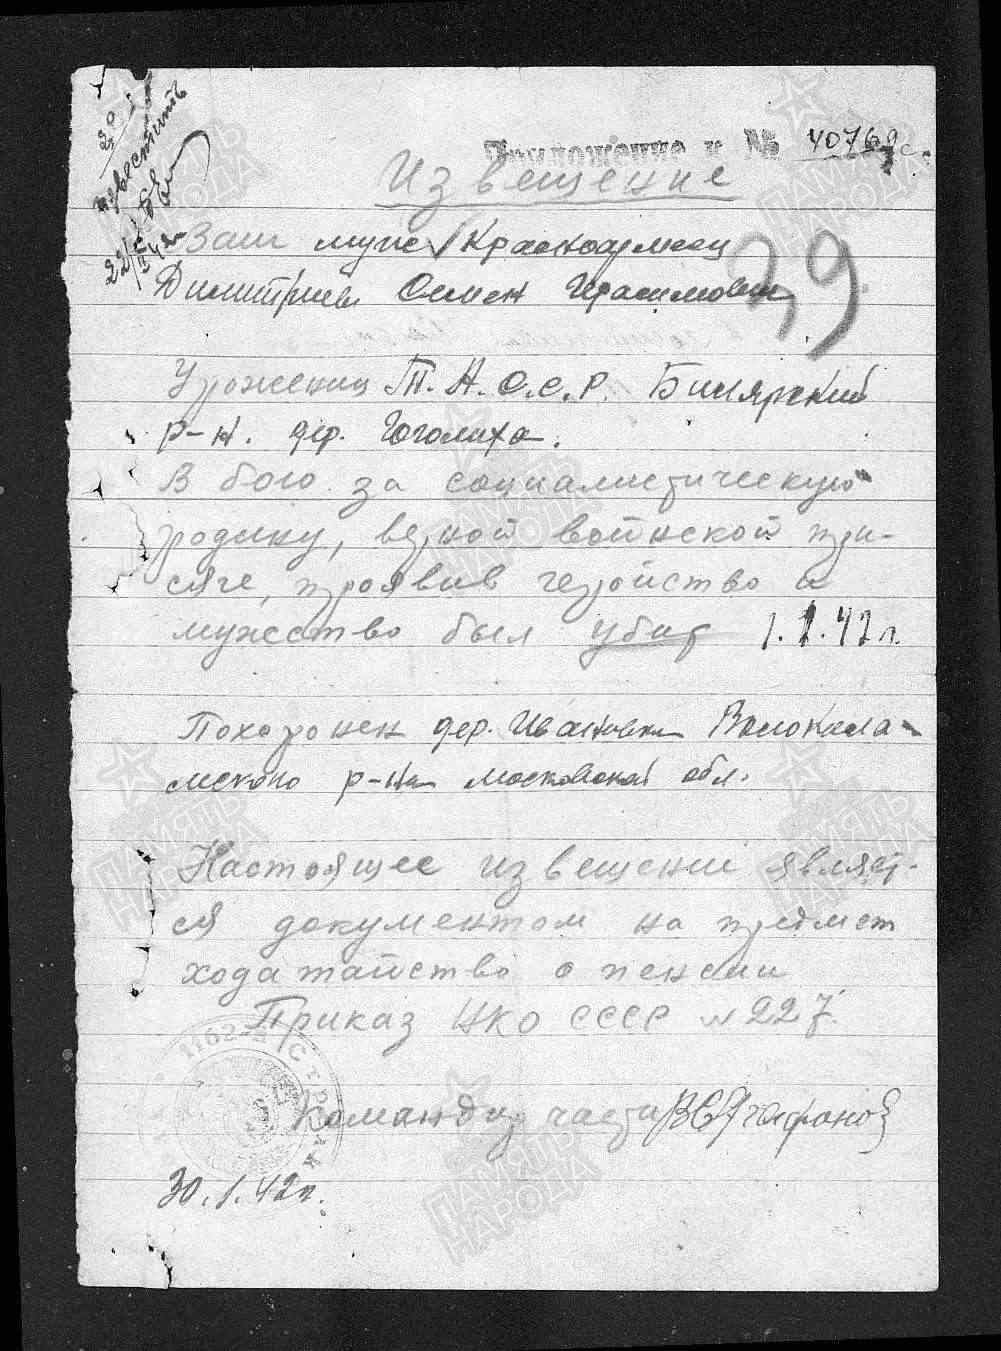 Приложение к № 40769с
Извещение
известить
Ваш муж Красноармеец
Димитриев Семен Герасимович
39
Уроженец Т.А.С.С.Р. Билярский
р-н. дер. Гоголиха.
В бою за социалистическую
родину, верной воинской при-
сяге, проявив геройство и
мужество был убит 1.1.42 г.
Похоронен дер. Ивановка Волокала-
мского р-на московской обл.
Настоящее извещение являет-
ся документом на предмет
ходатайство о пенсии
Приказ НКО СССР № 227.
Командир части Агафонов
30.1.42 г.
ПАМЯТЬ НАРОДА
ПАМЯТЬ НАРОДА
ПАМЯТЬ НАРОДА
ПАМЯТЬ НАРОДА
ПАМЯТЬ НАРОДА
ПАМЯТЬ НАРОДА